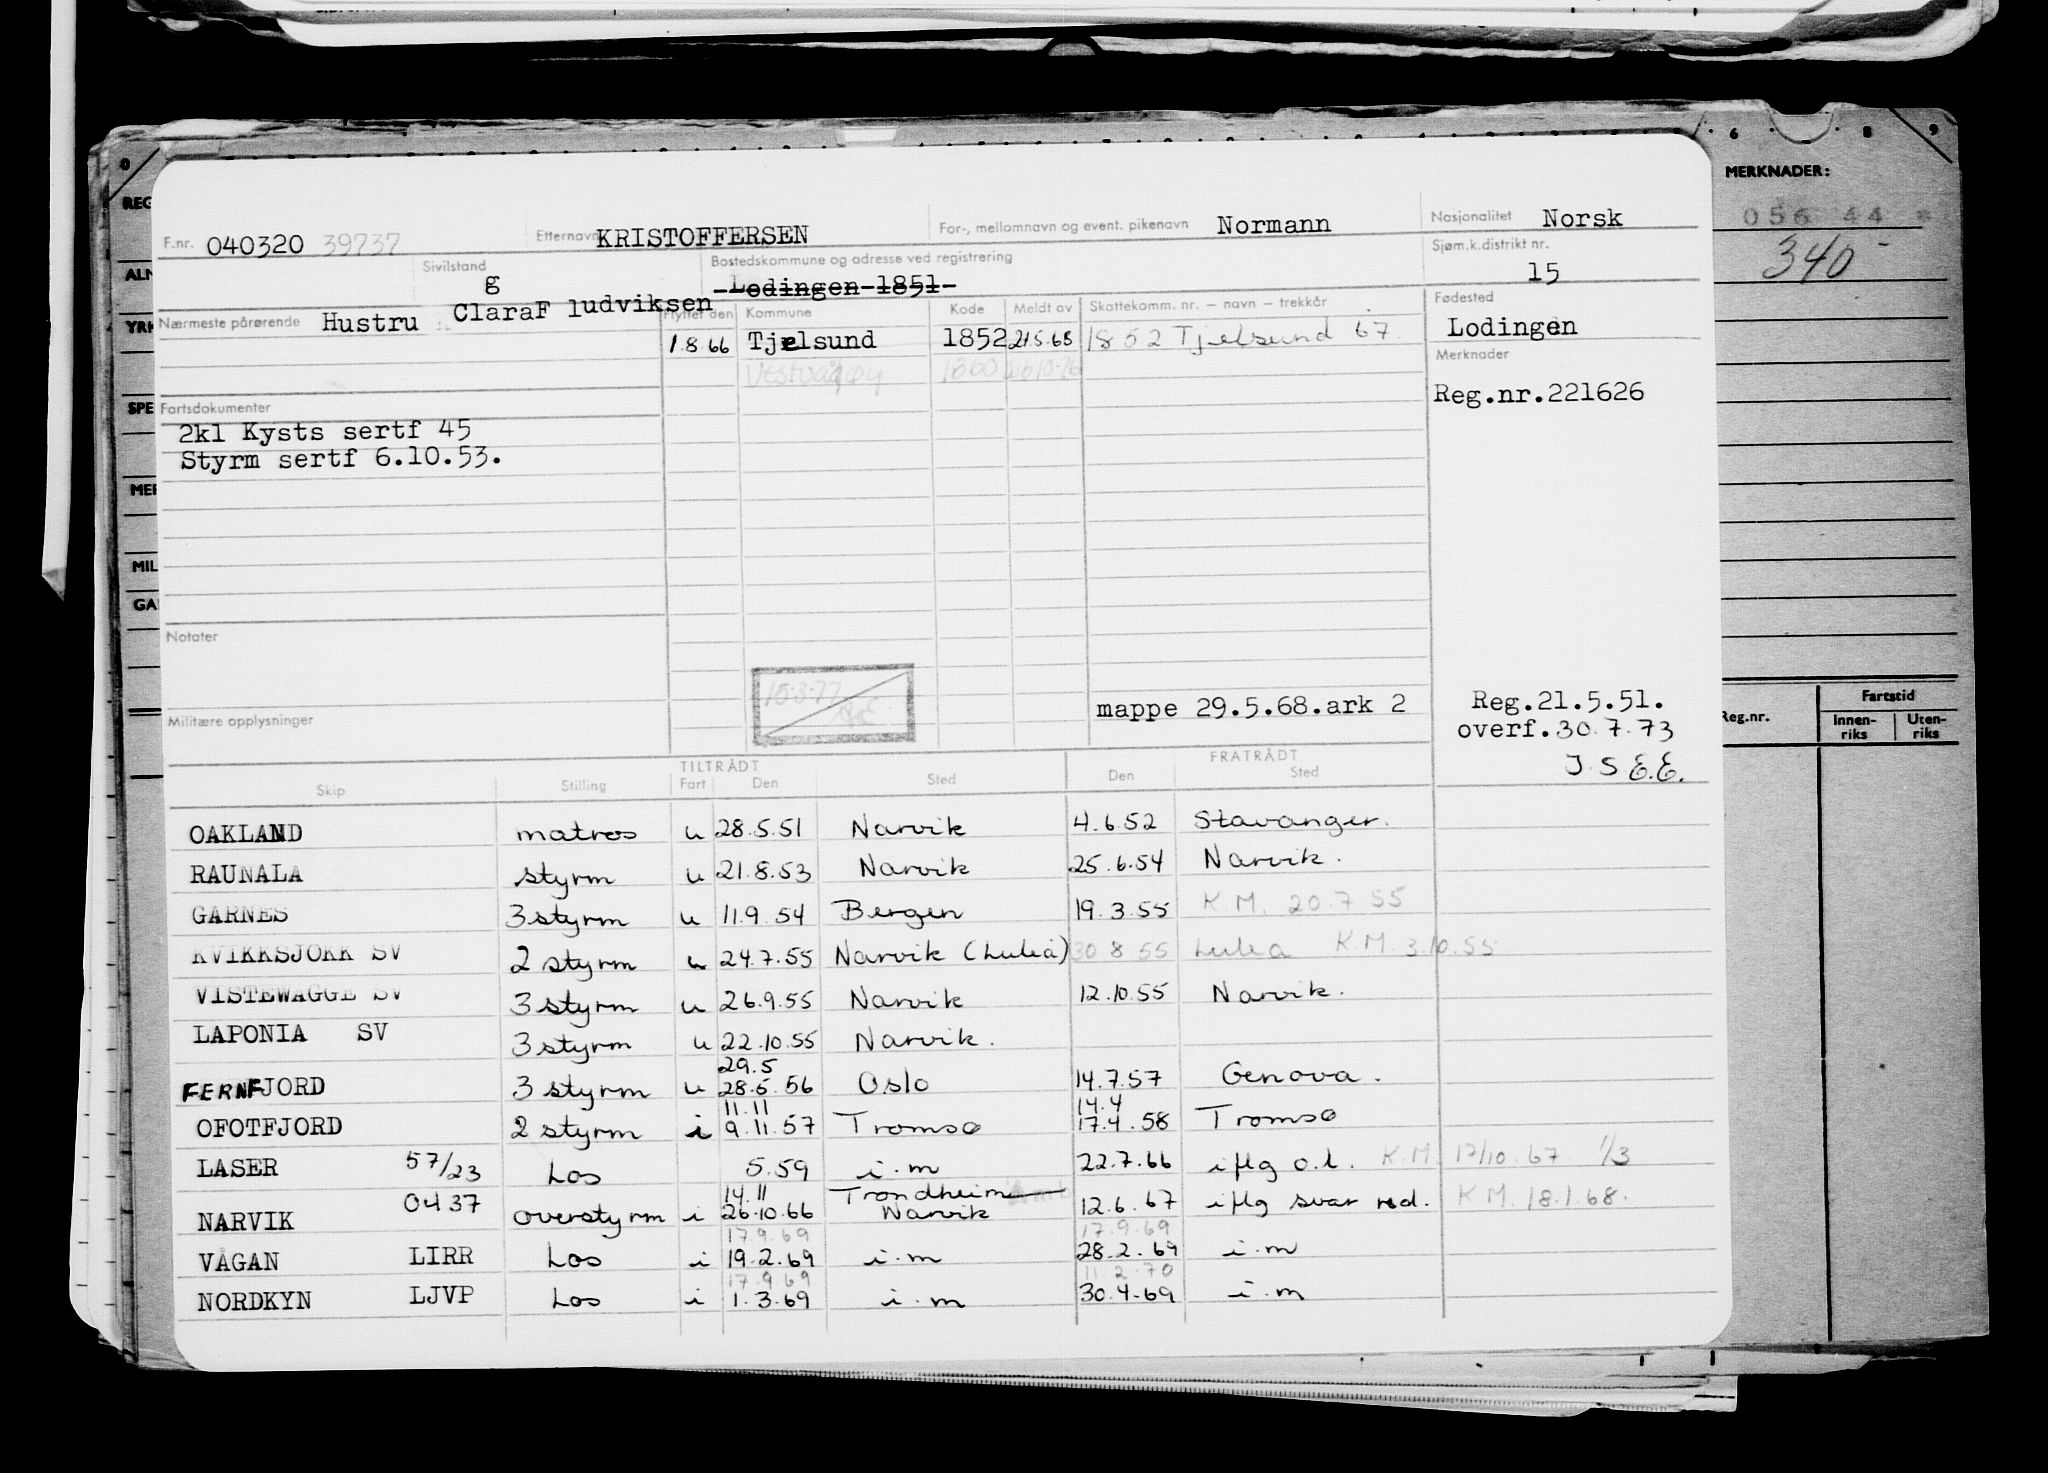 0 6 8 9
REG
MERKNADER:
056 44 *
340
F.nr. 040320 39737 Etternavn KRISTOFFERSEN For-, mellomnavn og event. pikenavn Normann Nasjonalitet Norsk
ALM
Sivilstand g Bostedskommune og adresse ved registrering Lodingen 1851 Sjøm.k.distrikt nr. 15
YRK
Nærmeste pårørende Hustru ClaraF ludviksen Flyttet den Kommune Kode Meldt av Skattekomm. nr. – navn – trekkår Fødested
1.8 66 Tjelsund 1852 21.5.68 1852 Tjelsund 67 Lodingen
1860
Merknader
Reg.nr.221626
SPE
Fartsdokumenter
2kl Kysts sertf 45
Styrm sertf 6.10.53.
MER
MIL
GA
Notater
15.3.77
mappe 29.5.68.ark 2 Reg.21.5.51.
Militære opplysninger overf.30.7.73
J S E.E.
Reg.nr. Fartstid
Innen-riks Uten-riks
TILTRÅDT FRATRÅDT
Skip Stilling Fart Den Sted Den Sted
OAKLAND matros u 28.5.51 Narvik 4.6.52 Stavanger.
RAUNALA styrm u 21.8.53 Narvik 25.6.54 Narvik.
GARNES 3 styrm u 11.9.54 Bergen 19.3.55 K.M. 20.7.55
KVIKKSJOKK SV 2 styrm u 24.7.55 Narvik (Luleå) 30 8 55 Lulea K.M. 3.10.55
VISTEWAGGE SV 3 styrm u 26.9.55 Narvik 12.10.55 Narvik.
LAPONIA SV 3 styrm u 22.10.55 Narvik.
29.5
FERNFJORD 3 styrm u 28.5.56 Oslo 14.7.57 Genova.
11.11 14.4
OFOTFJORD 2 styrm i 9.11.57 Tromsø 17.4.58 Tromsø
LASER 57/23 Los 5.59 i.m 22.7.66 iflg o.l. K.M. 17/10.67 1/3
14.11 Trondheim
NARVIK 0437 overstyrm i 26.10.66 Narvik 12.6.67 iflg svar red. K.M. 18.1.68.
17.9.69 17.9.69
VÅGAN LIRR Los i 19.2.69 i.m 28.2.69 i.m
17.9 69 11.2.70
NORDKYN LJVP Los i 1.3.69 i.m 30.4.69 i.m